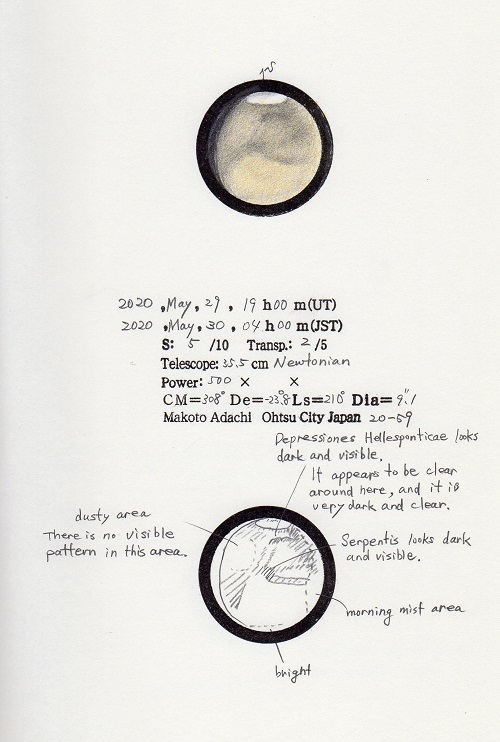 S
2020 , May, 29 , 19 h 00 m(UT)
2020 , May, 30 , 04 h 00 m(JST)
S: 5 /10 Transp.: 2 /5
Telescope: 35.5 cm Newtonian
Power: 500 × ×
CM=308° De=-23.8° Ls=210° Dia= 9".1
Makoto Adachi Ohtsu City Japan 20-59
Depressiones Hellesponticae looks
dark and visible.
It appears to be clear
around here, and it is
very dark and clear.
dusty area
There is no visible
pattern in this area.
Serpentis looks dark
and visible.
morning mist area
bright